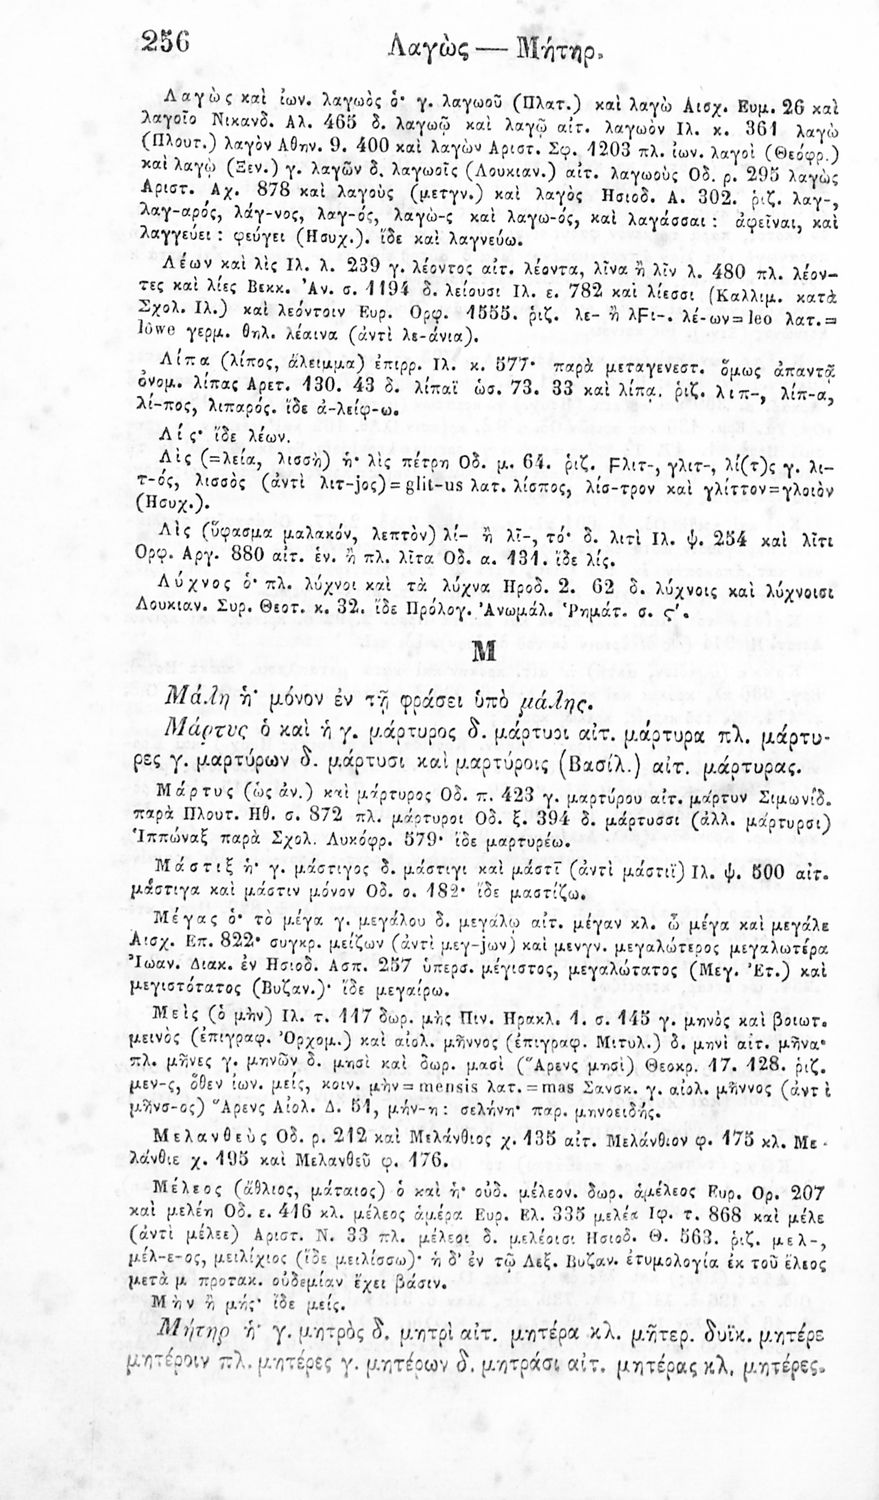 256
Λαγὼς — Μήτηρ.
Λαγὼς καὶ ἰων. λαγωὸς ὁ· γ. λαγωοῦ (Πλατ.) καὶ λαγὼ Αισχ. Ευμ. 26 καὶ
λαγοῖο Νικανδ. Αλ. 465 δ. λαγωῷ καὶ λαγῷ αἰτ. λαγωὸν Ιλ. κ. 361 λαγὼ
(Πλουτ.) λαγὸν Αθην. 9. 400 καὶ λαγὼν Αριστ. Σφ. 1203 πλ. ἰων. λαγοὶ (Θεόφρ.)
καὶ λαγῲ (Ξεν.) γ. λαγῶν δ. λαγωοῖς (Λουκιαν.) αἰτ. λαγωοὺς Οδ. ρ. 295 λαγὼς
Αριστ. Αχ. 878 καὶ λαγοὺς (μετγν.) καὶ λαγὸς Ησιοδ. Α. 302. ῥιζ. λαγ-,
λαγ-αρός, λάγ-νος, λαγ-ός, λαγὼ-ς καὶ λαγω-ός, καὶ λαγάσσαι : ἀφεῖναι, καὶ
λαγγεύει : φεύγει (Ησυχ.). ἴδε καὶ λαγνεύω.
Λέων καὶ λὶς Ιλ. λ. 239 γ. λέοντος αἰτ. λέοντα, λῖνα ἢ λῖν λ. 480 πλ. λέον-
τες καὶ λίες Βεκκ. Ἀν. σ. 1194 δ. λείουσι Ιλ. ε. 782 καὶ λίεσσι (Καλλιμ. κατὰ
Σχολ. Ιλ.) καὶ λεόντοιν Ευρ. Ορφ. 1555. ῥιζ. λε- ἢ λϜι-. λέ-ων=leo λατ.=
löwe γερμ. θηλ. λέαινα (ἀντὶ λε-άνια).
Λίπα (λίπος, ἄλειμμα) ἐπιρρ. Ιλ. κ. 577· παρὰ μεταγενεστ. ὅμως ἀπαντᾷ
ὀνομ. λίπας Αρετ. 130. 43 δ. λίπαϊ ὡσ. 73. 33 καὶ λίπᾳ. ῥιζ. λιπ-, λίπ-α,
λί-πος, λιπαρός. ἴδε ἀ-λείφ-ω.
Λίς· ἴδε λέων.
Λὶς (=λεία, λισσὴ) ἡ· λὶς πέτρη Οδ. μ. 64. ῥιζ. Ϝλιτ-, γλιτ-, λί(τ)ς γ. λι-
τ-ός, λισσὸς (ἀντὶ λιτ-jος)=glit-us λατ. λίσπος, λίσ-τρον καὶ γλίττον=γλοιὸν
(Ησυχ.).
Λὶς (ὕφασμα μαλακόν, λεπτὸν) λί- ἢ λῖ-, τό· δ. λιτὶ Ιλ. ψ. 254 καὶ λῖτι
Ορφ. Αργ. 880 αἰτ. ἑν. ἢ πλ. λῖτα Οδ. α. 131. ἴδε λίς.
Λύχνος ὁ· πλ. λύχνοι καὶ τὰ λύχνα Ηροδ. 2. 62 δ. λύχνοις καὶ λύχνοισι
Λουκιαν. Συρ. Θεοτ. κ. 32. ἴδε Πρόλογ. Ἀνωμάλ. Ῥημάτ. σ. ς'.
Μ
Μάλη ἡ· μόνον ἐν τῇ φράσει ὑπὸ μάλης.
Μάρτυς ὁ καὶ ἡ γ. μάρτυρος δ. μάρτυρι αἰτ. μάρτυρα πλ. μάρτυ-
ρες γ. μαρτύρων δ. μάρτυσι καὶ μαρτύροις (Βασίλ.) αἰτ. μάρτυρας.
Μάρτυς (ὡς ἀν.) καὶ μάρτυρος Οδ. π. 423 γ. μαρτύρου αἰτ. μάρτυν Σιμωνίδ.
παρὰ Πλουτ. Ηθ. σ. 872 πλ. μάρτυροι Οδ. ξ. 394 δ. μάρτυσσι (ἀλλ. μάρτυρσι)
Ἱππώναξ παρὰ Σχολ. Λυκόφρ. 579· ἴδε μαρτυρέω.
Μάστιξ ἡ· γ. μάστιγος δ. μάστιγι καὶ μάστῑ (ἀντὶ μάστιϊ) Ιλ. ψ. 500 αἰτ.
μάστιγα καὶ μάστιν μόνον Οδ. ο. 182· ἴδε μαστίζω.
Μέγας ὁ· τὸ μέγα γ. μεγάλου δ. μεγάλῳ αἰτ. μέγαν κλ. ὦ μέγα καὶ μεγάλε
Αισχ. Επ. 822· συγκρ. μείζων (ἀντὶ μεγ-jων) καὶ μενγν. μεγαλώτερος μεγαλωτέρα
Ἰωαν. Διακ. ἐν Ησιοδ. Ασπ. 257 ὑπερσ. μέγιστος, μεγαλώτατος (Μεγ. Ἐτ.) καὶ
μεγιστότατος (Βυζαν.)· ἴδε μεγαίρω.
Μεὶς (ὁ μὴν) Ιλ. τ. 117 δωρ. μὴς Πιν. Ηρακλ. 1. σ. 145 γ. μηνὸς καὶ βοιωτ.
μεινὸς (ἐπιγραφ. Ὀρχομ.) καὶ αἰολ. μῆννος (ἐπιγραφ. Μιτυλ.) δ. μηνὶ αἰτ. μῆνα·
πλ. μῆνες γ. μηνῶν δ. μησὶ καὶ δωρ. μασὶ (Ἄρενς μησὶ) Θεοκρ. 17. 128. ῥιζ.
μεν-ς, ὅθεν ἰων. μείς, κοιν. μὴν=mensis λατ.=mas Σανσκ. γ. αἰολ. μῆννος (ἀντὶ
μῆνσ-ος) Ἄρενς Αἰολ. Δ. 51, μήν-η : σελήνη· παρ. μηνοειδής.
Μελανθεὺς Οδ. ρ. 212 καὶ Μελάνθιος χ. 135 αἰτ. Μελάνθιον φ. 175 κλ. Με-
λάνθιε χ. 195 καὶ Μελανθεῦ φ. 176.
Μέλεος (ἄθλιος, μάταιος) ὁ καὶ ἡ· οὐδ. μέλεον. δωρ. ἀμέλεος Ευρ. Ορ. 207
καὶ μελέη Οδ. ε. 416 κλ. μέλεος ἁμέρα Ευρ. Ελ. 335 μελέα Ιφ. τ. 868 καὶ μέλε
(ἀντὶ μέλεε) Αριστ. Ν. 33 πλ. μέλεοι δ. μελέοισι Ησιοδ. Θ. 563. ῥιζ. μελ-,
μέλ-ε-ος, μειλίχιος (ἴδε μειλίσσω)· ἡ δ' ἐν τῷ Λεξ. Βυζαν. ἐτυμολογία ἐκ τοῦ ἔλεος
μετὰ μ προτακ. οὐδεμίαν ἔχει βάσιν.
Μὴν ἢ μής· ἴδε μείς.
Μήτηρ ἡ· γ. μητρὸς δ. μητρὶ αἰτ. μητέρα κλ. μῆτερ. δυϊκ. μητέρε
μητέροιν πλ. μητέρες γ. μητέρων δ. μητράσι αἰτ. μητέρας κλ. μητέρες.